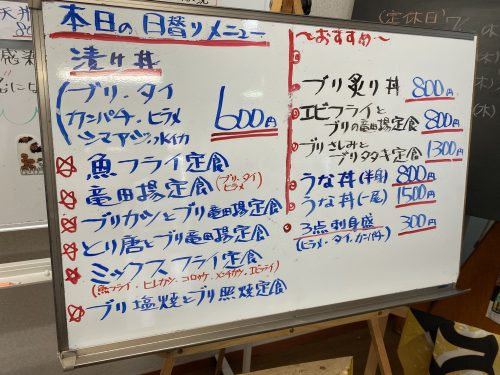 本日の日替りメニュー
漬け丼
ブリ・タイ
カンパチ・ヒラメ
シマアジ、水イカ
600円
魚フライ定食
竜田揚定食(ブリ、タイ ヒラメ)
ブリカツとブリ竜田揚定食
とり唐とブリ竜田揚定食
ミックスフライ定食
(魚フライ・ヒレカツ・コロッケ・メンチカツ・エビフライ)
ブリ塩焼とブリ照焼定食
〜おすすめ〜
ブリ炙り丼 800円
エビフライと
ブリの竜田揚定食 800円
ブリさしみと
ブリタタキ定食 1300円
うな丼(半身) 800円
うな丼(一尾) 1500円
3点刺身盛 300円
(ヒラメ・タイ、カンパチ)
(定休日)
天丼